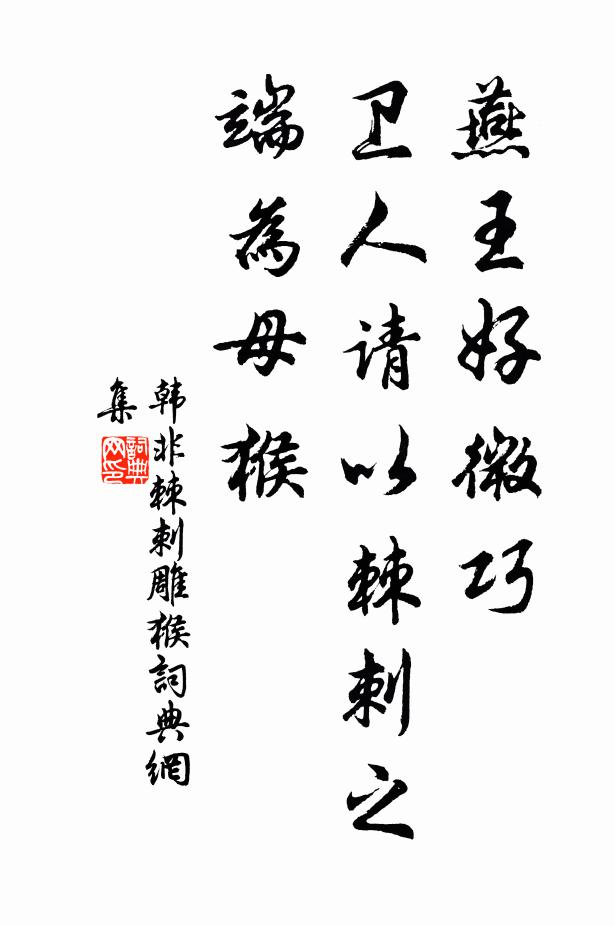 燕王好微巧
卫人请以棘刺之
端為母猴
韩非棘刺雕猴詞典網
集
詞典
网印